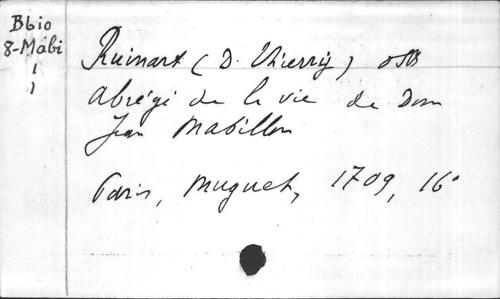 Bbio
8-Mabi
1
1
Ruinart (D. Thierry) osb
Abrégé de la vie de Dom
Jean Mabillon
Paris, Muguet, 1709, 16°